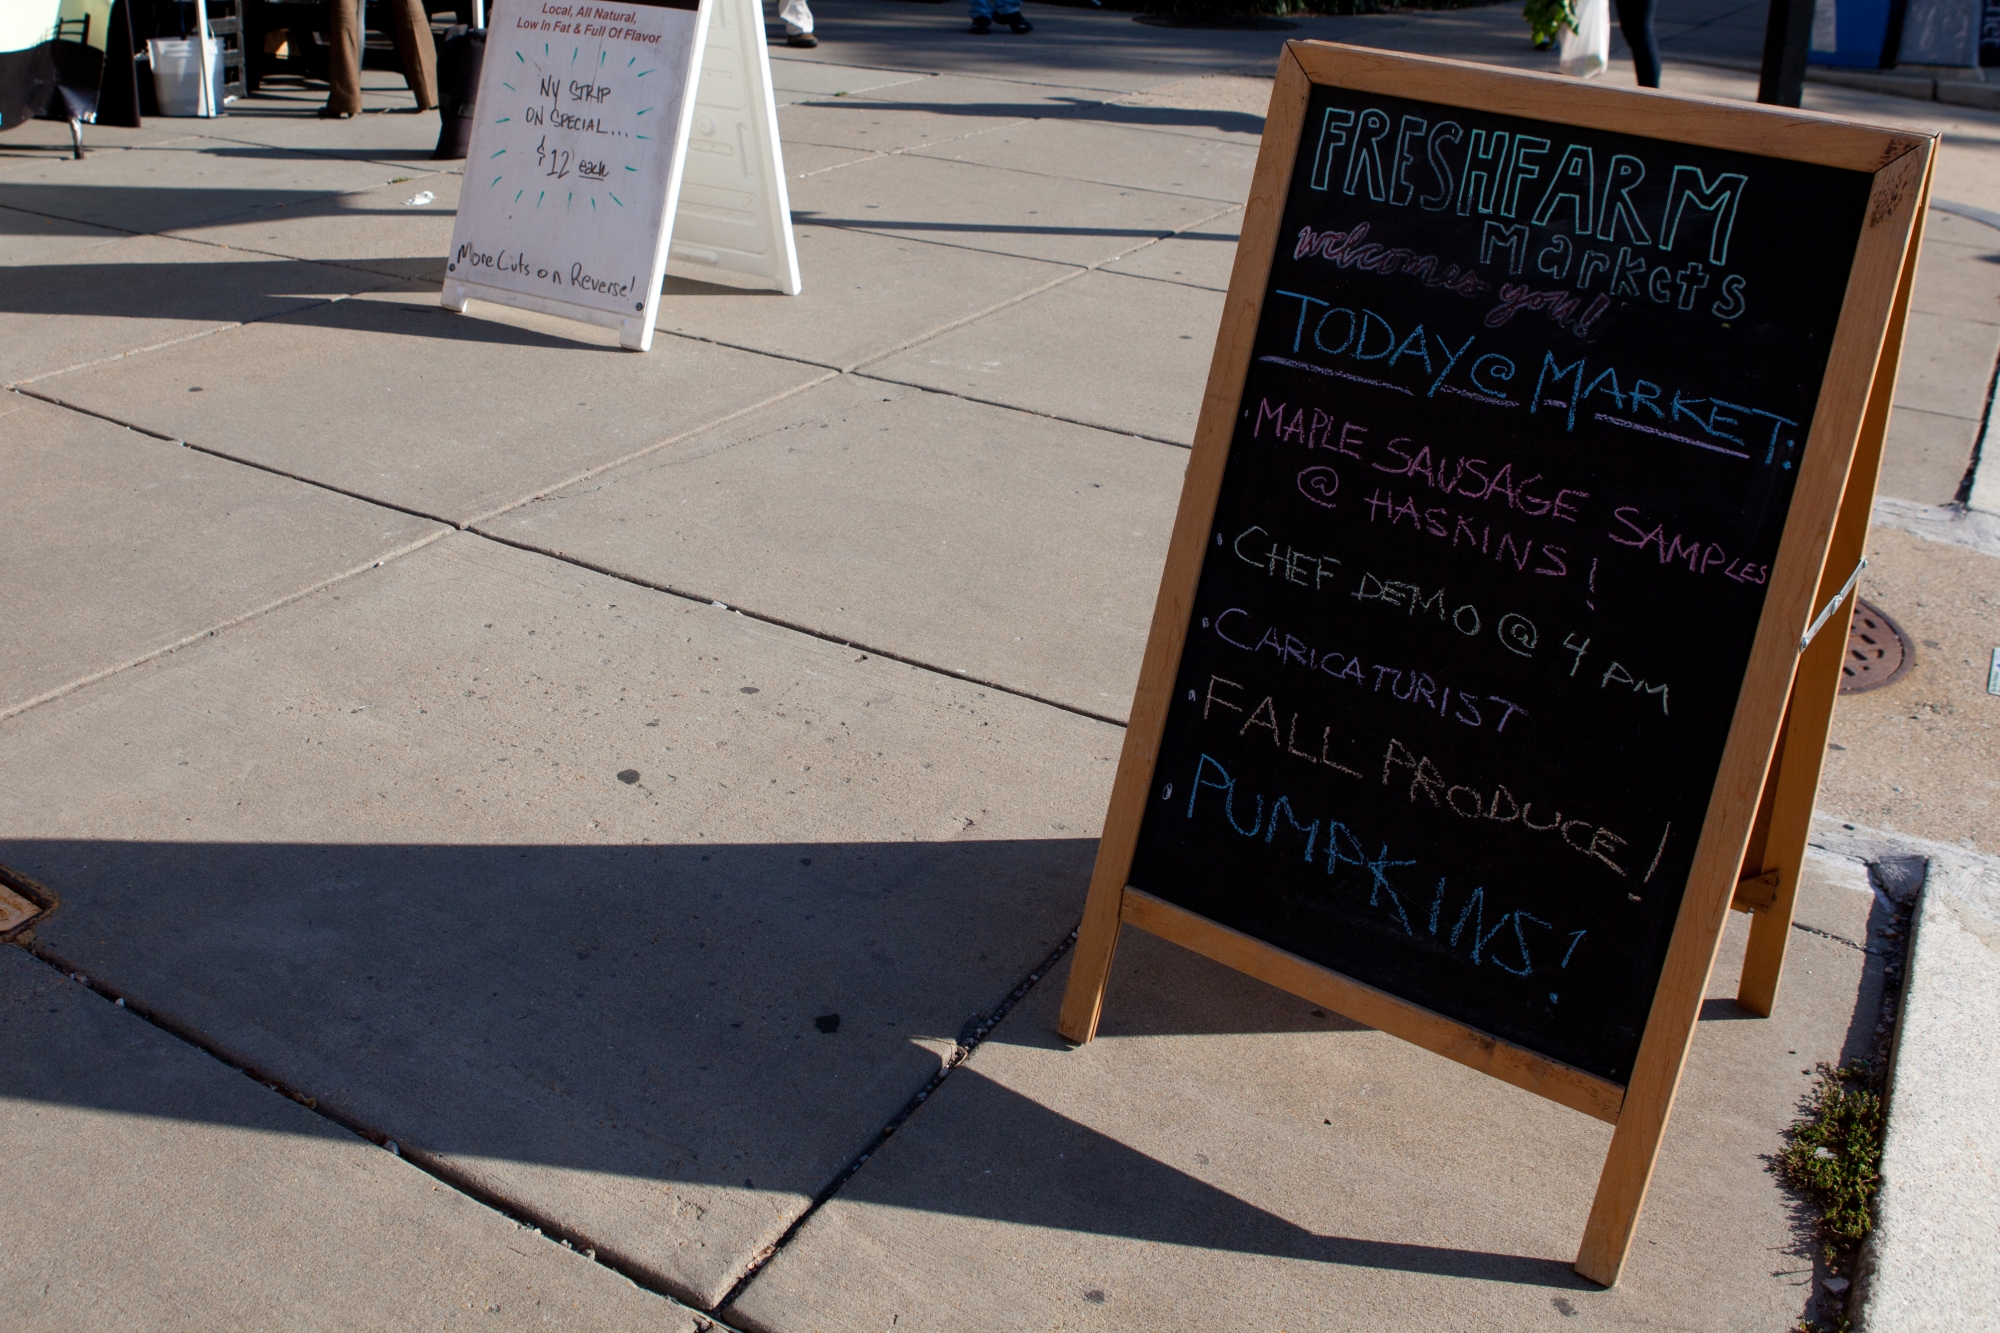 Local, All Natural,
Low In Fat & Full Of Flavor
NY STRIP
ON SPECIAL...
$12 each
More Cuts on Reverse!
FRESHFARM
Markets
welcomes you!
TODAY @ MARKET:
• MAPLE SAUSAGE SAMPLES
@ HASKINS!
• CHEF DEMO @ 4 PM
• CARICATURIST
• FALL PRODUCE!
• PUMPKINS!